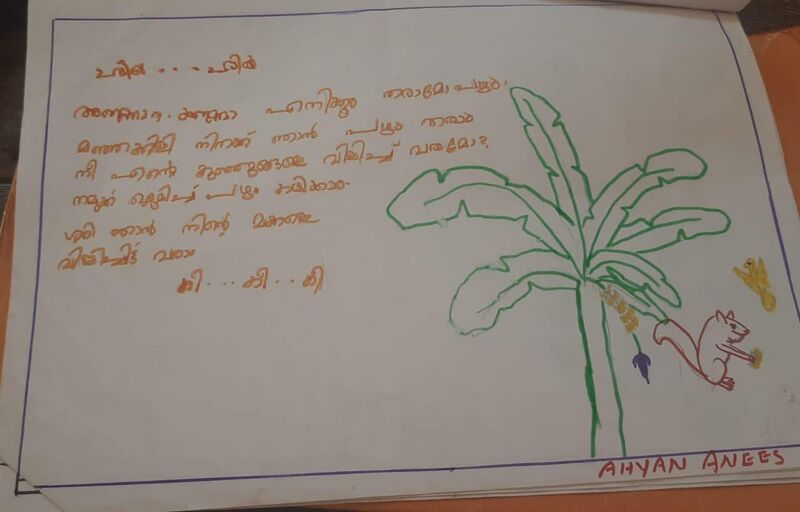 അണ്ണാന. കണ്ണാ എനിക്കും തരാമോ പഴം.
മഞ്ഞക്കിളി നിനക്ക് ഞാൻ പഴം തരാം
നീ എന്റെ കുഞ്ഞുങ്ങളെ വിളിച്ച് വരുമോ?
നമുക്ക് ഒരുമിച്ച് പഴം കഴിക്കാം.
ശരി ഞാൻ നിന്റെ മക്കളെ
വിളിച്ചിട്ട് വരാം
കീ...കീ..കീ
AHYAN ANEES